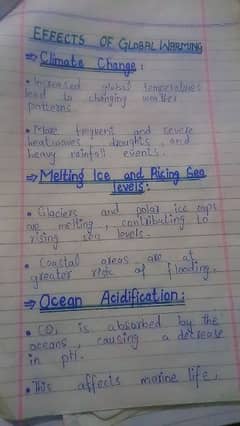 EFFECTS OF GLOBAL WARMING
⇒ Climate Change :
• Increased global temperatures
lead to changing weather
patterns
• More frequent and severe
heatwaves, droughts, and
heavy rainfall events.
⇒ Melting Ice and Rising Sea
levels :
• Glaciers and polar ice caps
are melting, contributing to
rising sea levels.
• Coastal areas are at
greater risk of flooding.
⇒ Ocean Acidification :
• CO₂ is absorbed by the
oceans, causing a decrease
in pH.
• This affects marine life,